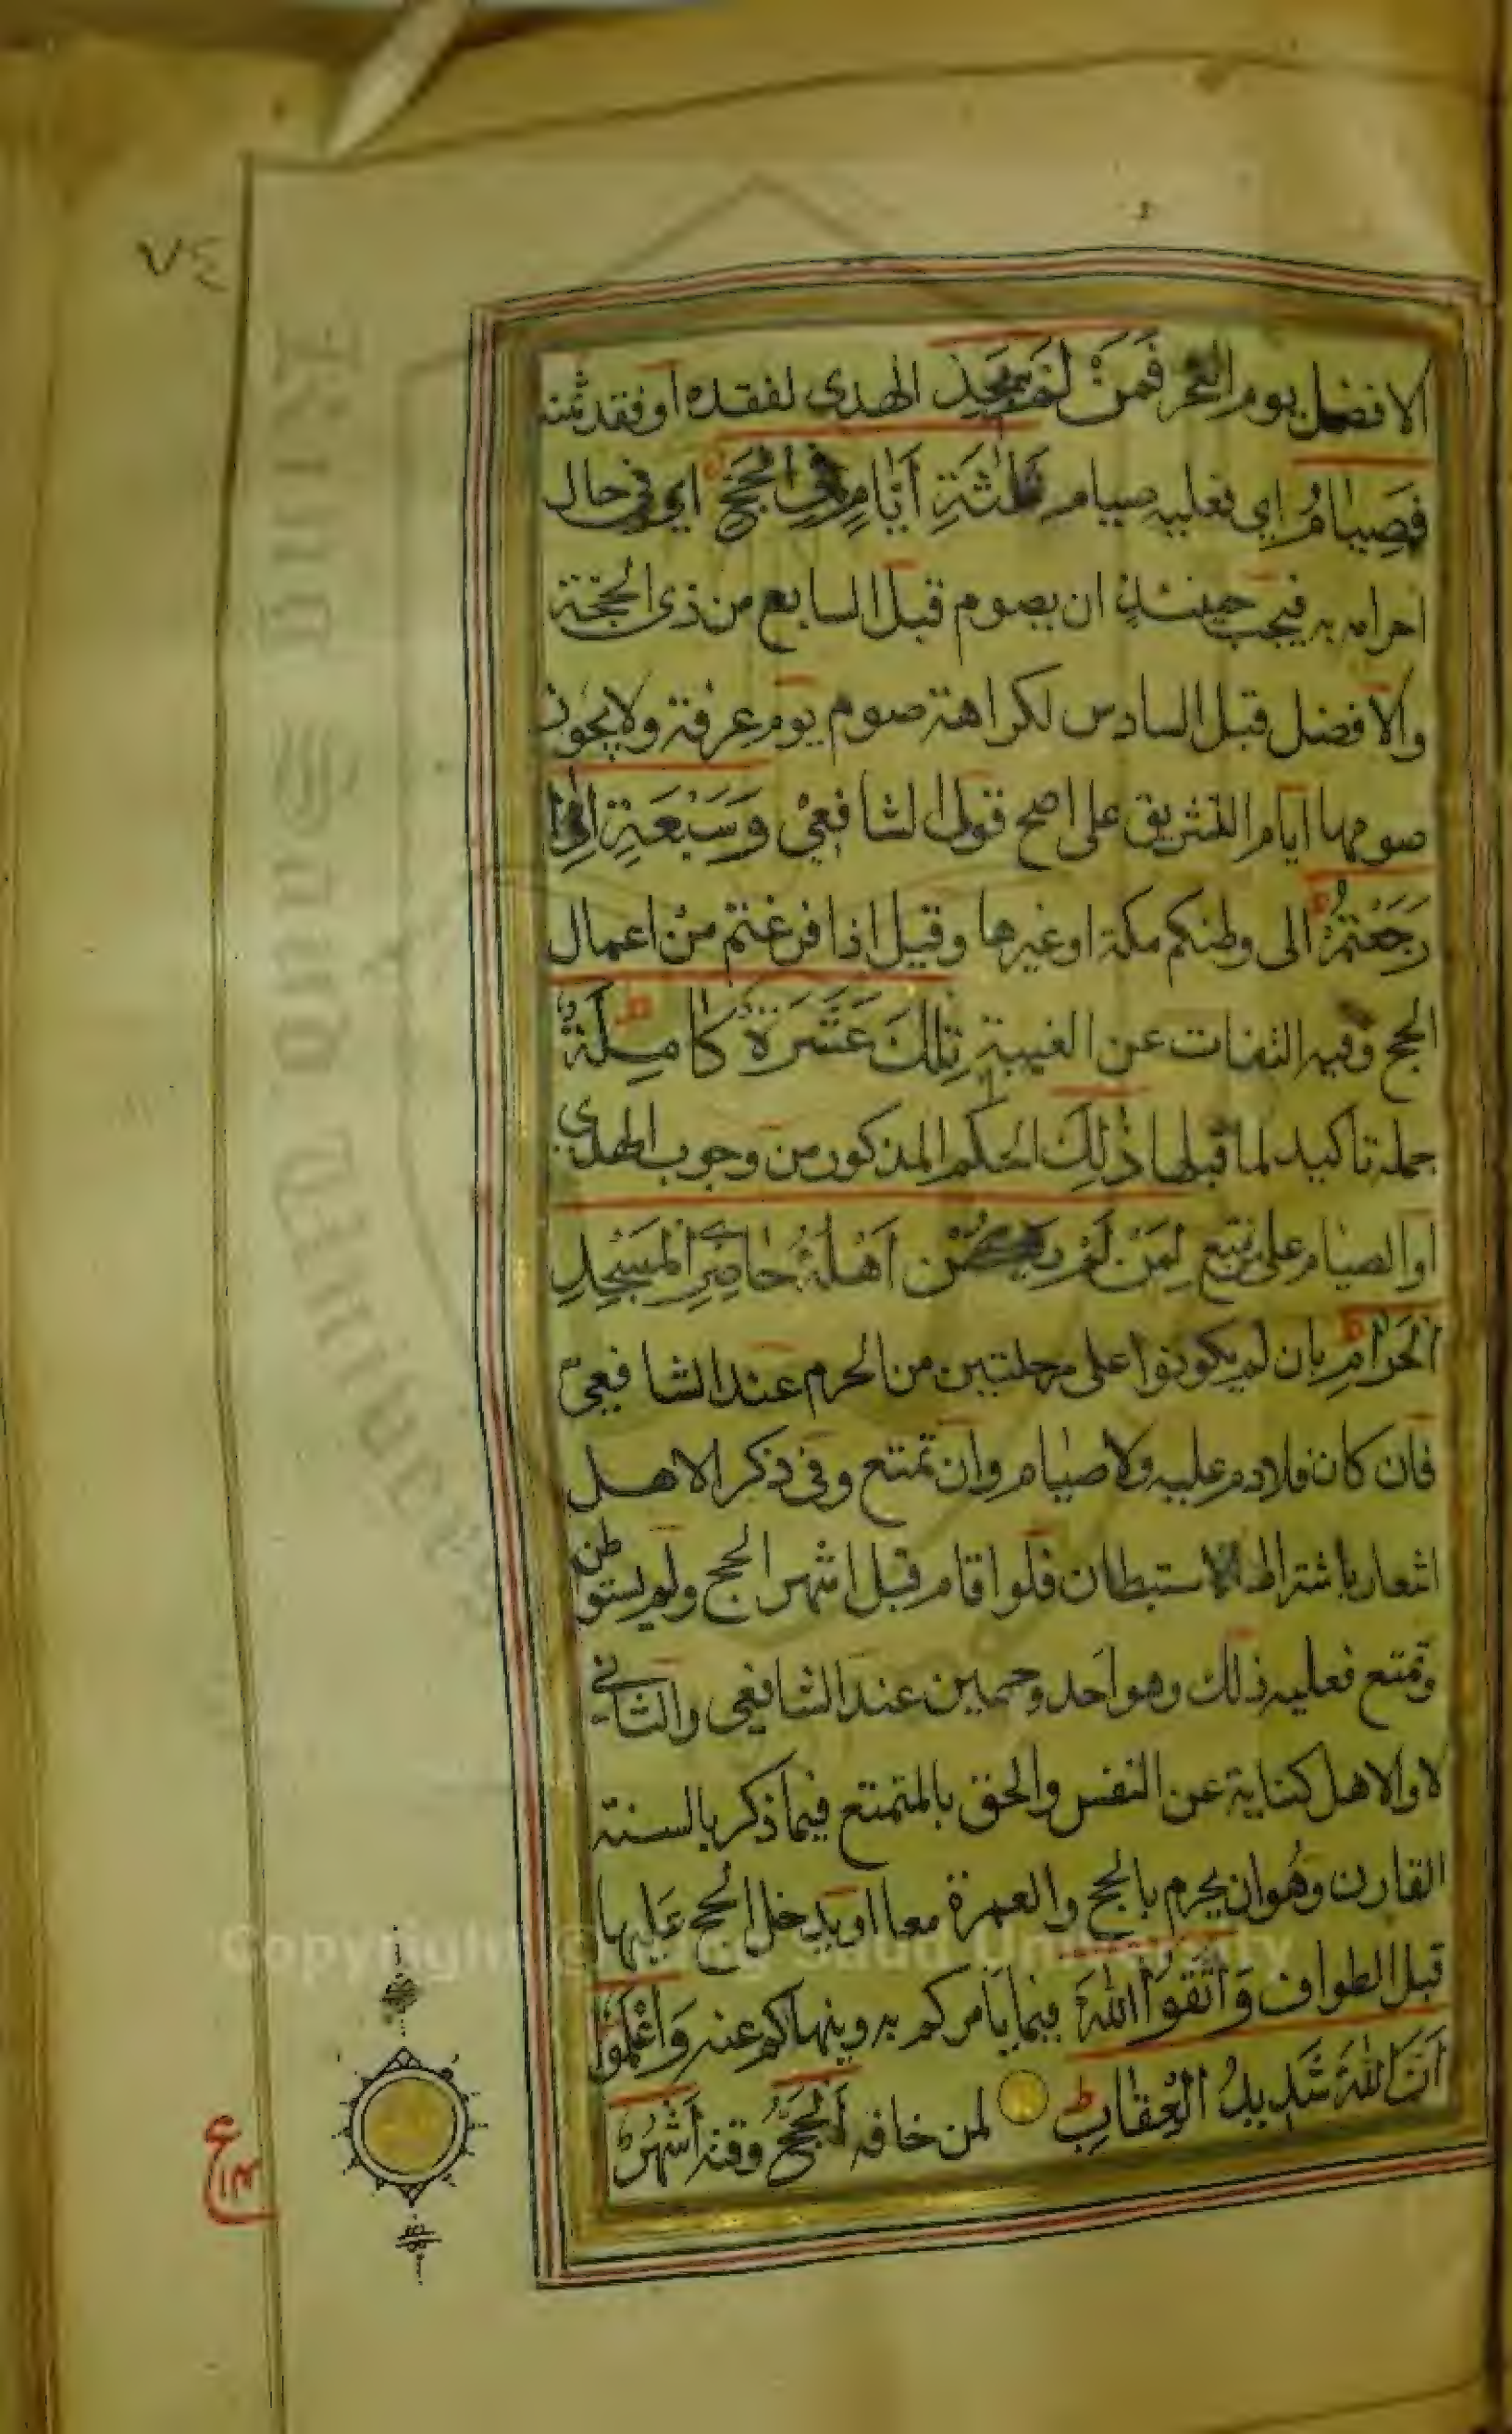 ٧٤
الافضل يوم النحر فَمَنْ لَمْ يَجِدْ الهدى لفقده او فقد ثمنه
فَصِيَامُ اي فعليه صيام ثَلٰثَةِ أَيَّامٍ فِي الْحَجِّ اي في حال
احرامه به فيجب حينئذٍ ان يصوم قبل السابع من ذى الحجة
والافضل قبل السادس لكراهة صوم يوم عرفة ولا يجوز
صومها ايام التشريق على اصح قولى الشافعيّ وَسَبْعَةٍ اِذَا
رَجَعْتُمْ الى وطنكم مكة او غيرها وقيل اذا فرغتم من اعمال
الحج وفيه التفات عن الغيبة تِلْكَ عَشَرَةٌ كَامِلَةٌ
جملة تاكيد لما قبلها ذٰلِكَ الحكم المذكور من وجوب الهدي
او الصيام على من تمتع لِمَنْ لَمْ يَكُنْ اَهْلُهُ حَاضِرِي الْمَسْجِدِ
الْحَرَامِ بان لم يكونوا على مرحلتين من الحرم عند الشافعيّ
فان كان فلا دم عليه ولا صيام وان تمتع وفى ذكر الاهل
اشعار باشتراط الاستيطان فلو اقام قبل اشهر الحج ولم يستوطن
وتمتع فعليه ذلك وهو احد وجهين عند الشافعي والثاني
لا والاهل كناية عن النفس والحق بالمتمتع فيما ذكر بالسنة
القارن وهو ان يحرم بالحج والعمرة معا او يدخل الحج عليها
قبل الطواف وَاتَّقُوا اللّٰهَ فيما يأمركم به وينهاكم عنه وَاعْلَمُوا
اَنَّ اللّٰهَ شَدِيدُ الْعِقَابِ لمن خافه اَلْحَجُّ وقته اَشْهُرٌ
ع
King Saud University
Copyright © King Saud University